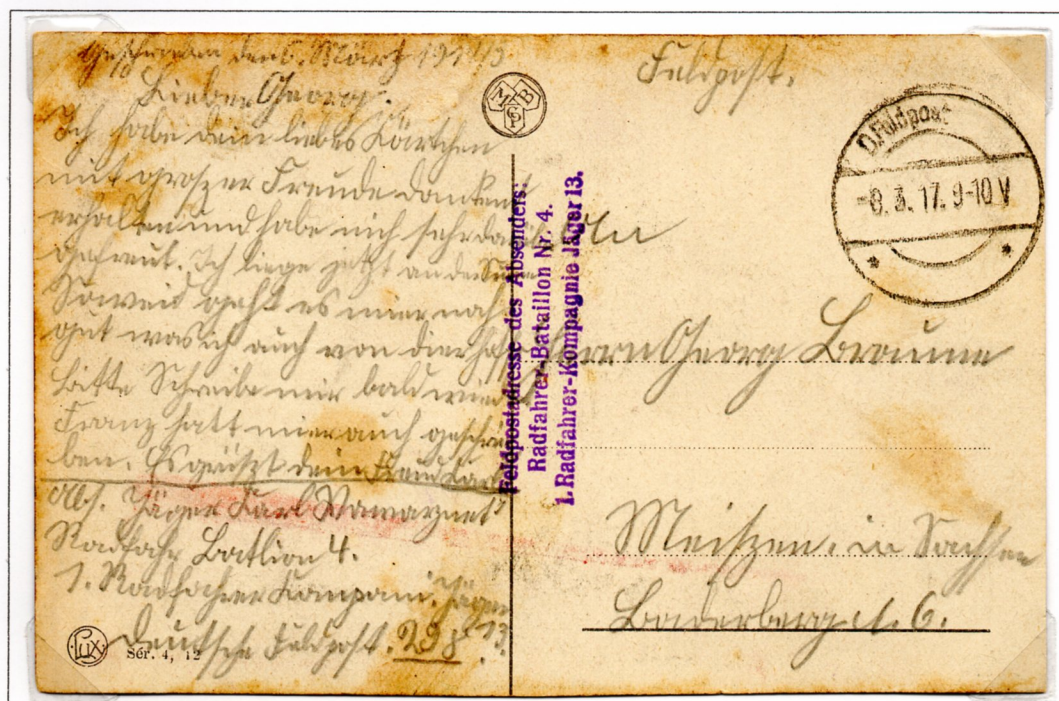 Geschrieben den 6. März 1917
Lieber Georg.
Ich habe dein liebes Kärtchen
mit groszer Freude dankent
erhalten und habe mich sehr
gefreut. Ich liege jetzt an der
Soweid geht es mier noch
gut was ich auch von dier hoffe
Bitte Schreibe mir bald wieder
Franz hatt mier auch geschrie
ben. Es grüszt dein Freund Karl
Abs. Jäger Karl
Radfahr Batlion 4.
1. Radfahrer Kompani. Jäger
13.
Deutsche Feldpost. 298
LUX
Ser. 4, 12
M B
Feldpostadresse des Absenders:
Radfahrer-Bataillon Nr. 4.
1. Radfahrer-Kompagnie Jäger 13.
Feldpost.
D. Feldpost
-8.3.17. 9-10 V
* *
An
Herrn Georg Braune
Meiszen, in Sachsen
Baderberg 6.